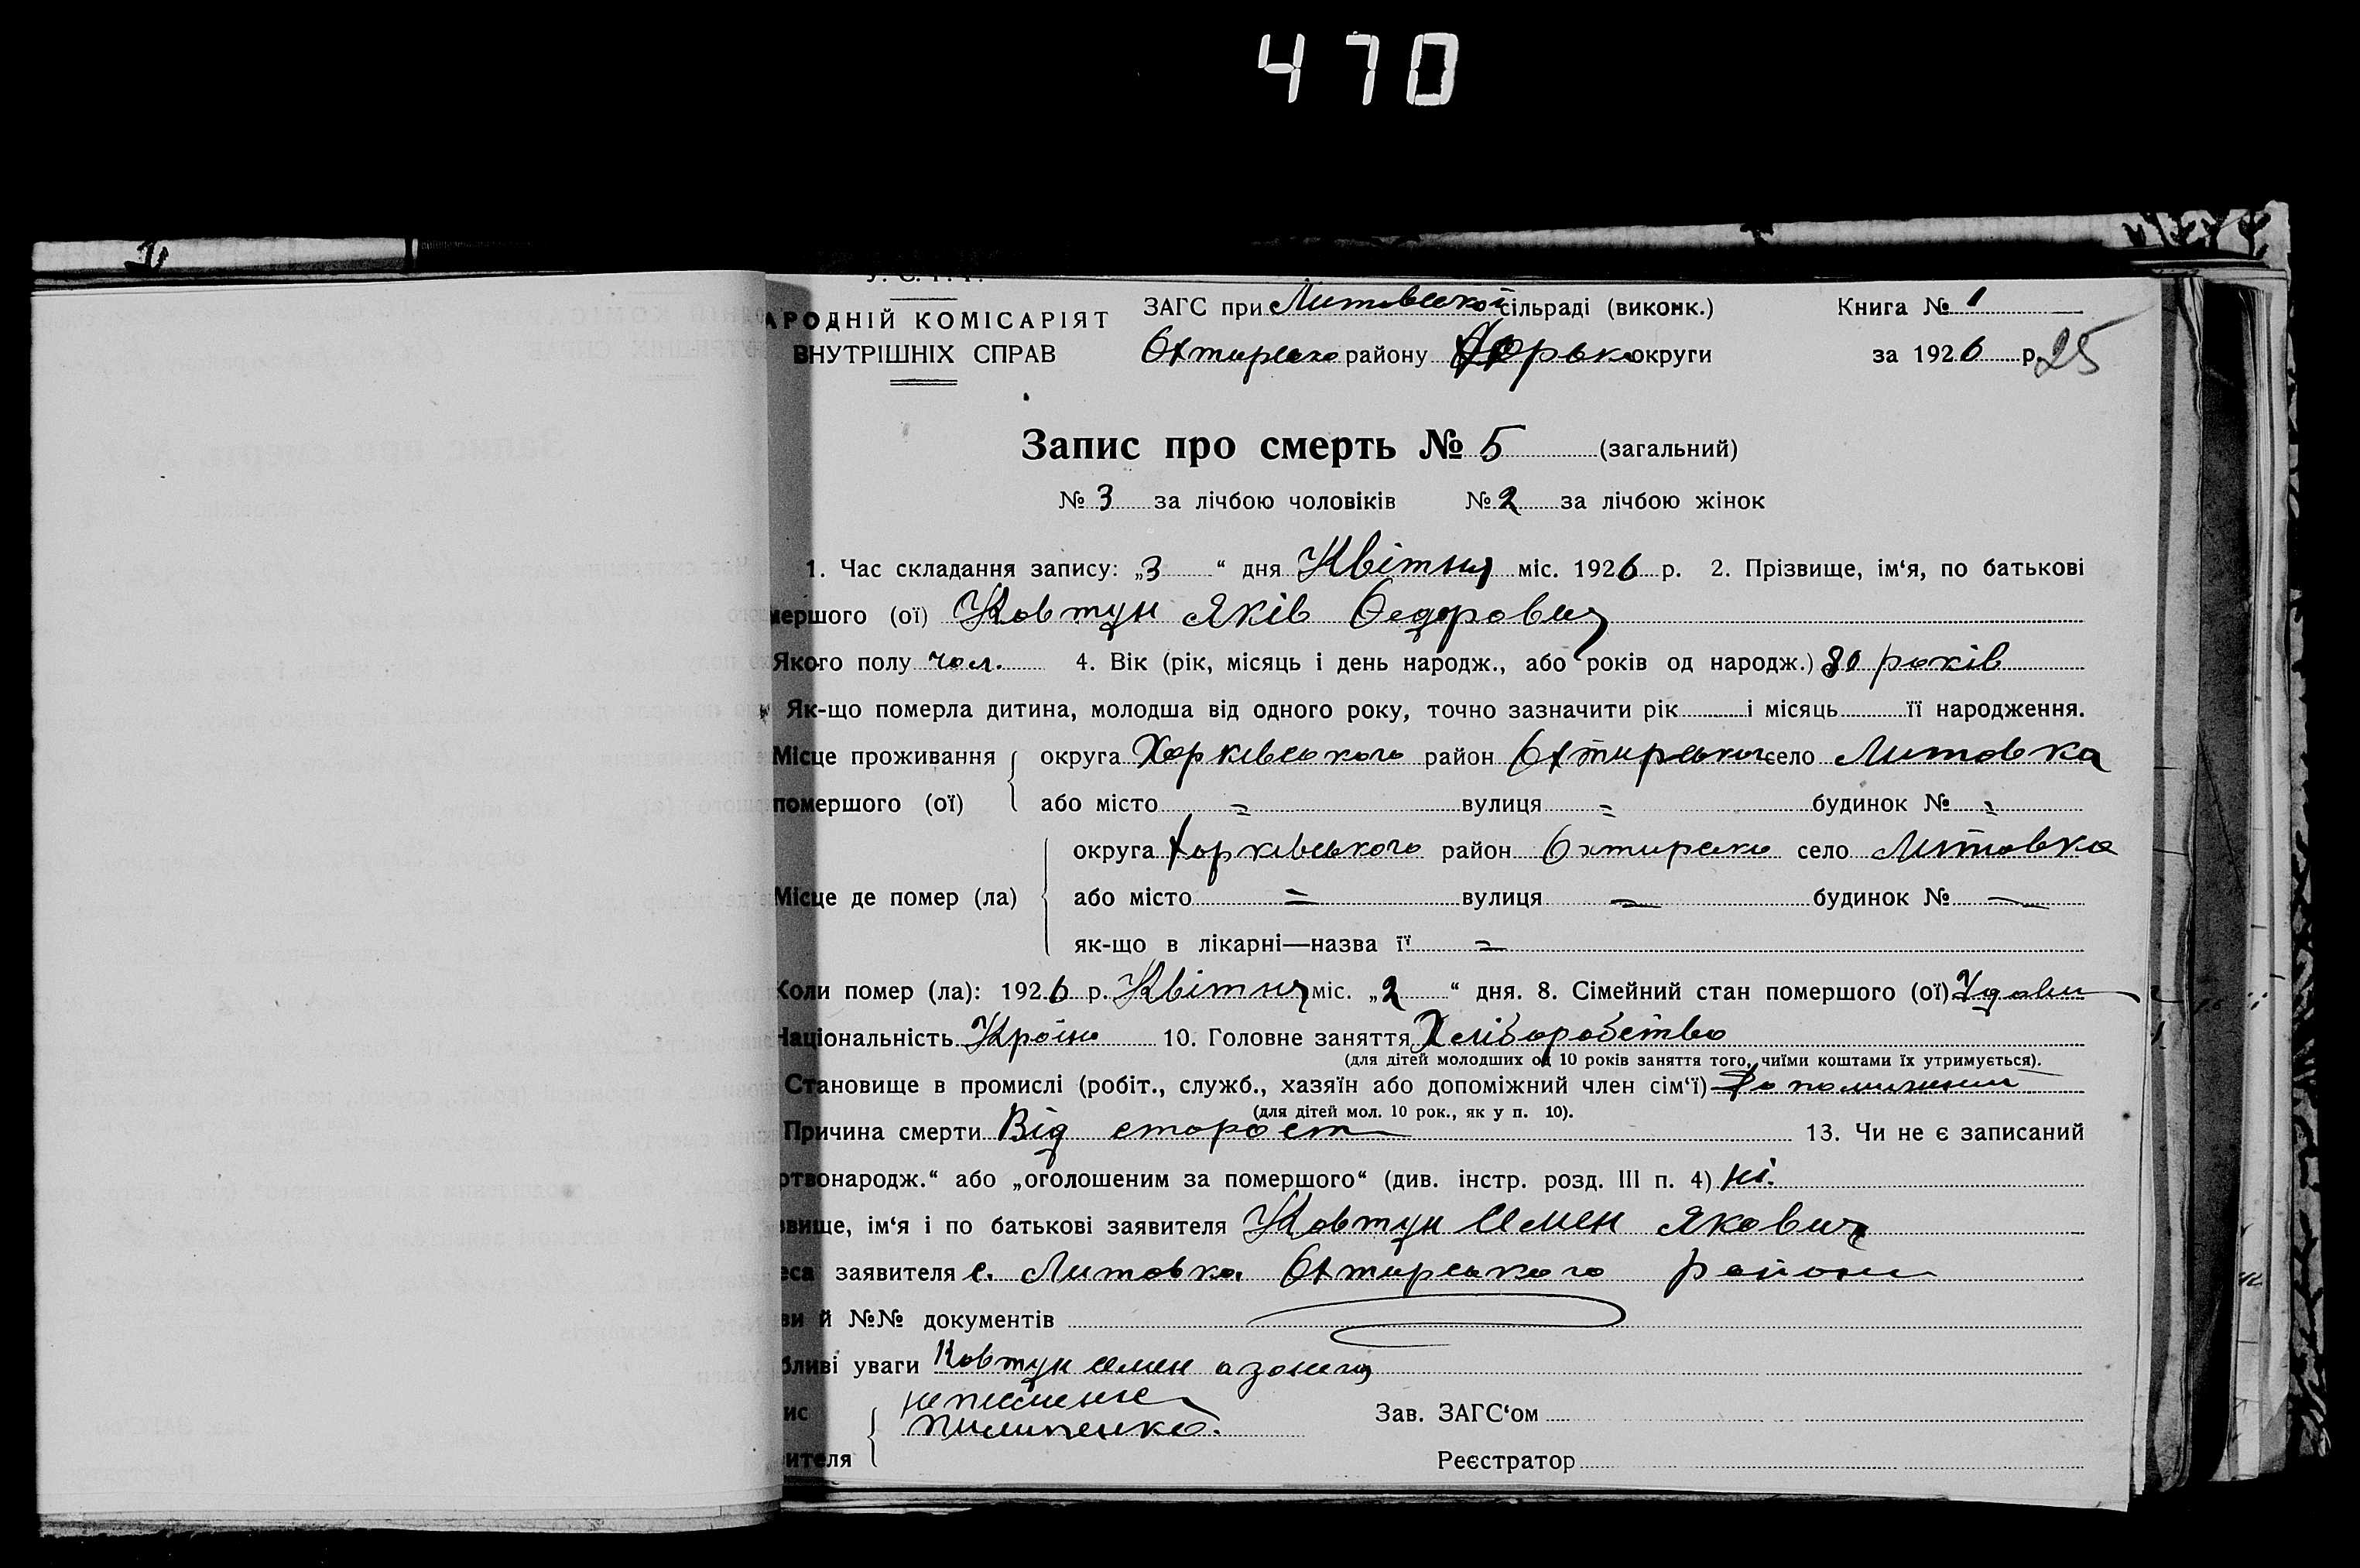 470
У. С. Р. Р.
АРОДНІЙ КОМІСАРІЯТ
ВНУТРІШНІХ СПРАВ
ЗАГС при Литовській сільраді (виконк.)
Охтирсько району Харьк округи
Книга № 1
за 1926 р.
25
Запис про смерть № 5 (загальний)
№ 3 за лічбою чоловіків № 2 за лічбою жінок
1. Час складання запису: „3“ дня Квітня міс. 1926 р. 2. Прізвище, ім‘я, по батькові
мершого (ої) Ковтун Яків Федорович
Якого полу чол. 4. Вік (рік, місяць і день народж., або років од народж.) 80 років
Як-що померла дитина, молодша від одного року, точно зазначити рік і місяць її народження.
Місце проживання округа Харківського район Охтирського село Литовка
помершого (ої) або місто = вулиця = будинок № =
округа Харківського район Охтирсько село Литовка
Місце де помер (ла) або місто = вулиця = будинок № =
як-що в лікарні—назва її =
Коли помер (ла): 1926 р. Квітня міс. „2“ дня. 8. Сімейний стан помершого (ої) Удовец
Національність Україн 10. Головне заняття Хліборобство
(для дітей молодших од 10 років заняття того, чиїми коштами їх утримується).
Становище в промислі (робіт., служб., хазяїн або допоміжний член сім‘ї)
(для дітей мол. 10 рок., як у п. 10).
Причина смерти Від старост 13. Чи не є записаний
ртвонародж.“ або „оголошеним за помершого“ (див. інстр. розд. III п. 4) ні.
звище, ім‘я і по батькові заявителя Ковтун Семен Якович
еса заявителя с. Литовка Охтирського району
ви й №№ документів
бливі уваги Ковтун Семен а за него
ис неписьменн Зав. ЗАГС‘ом
Пилипенко.
ителя Реєстратор